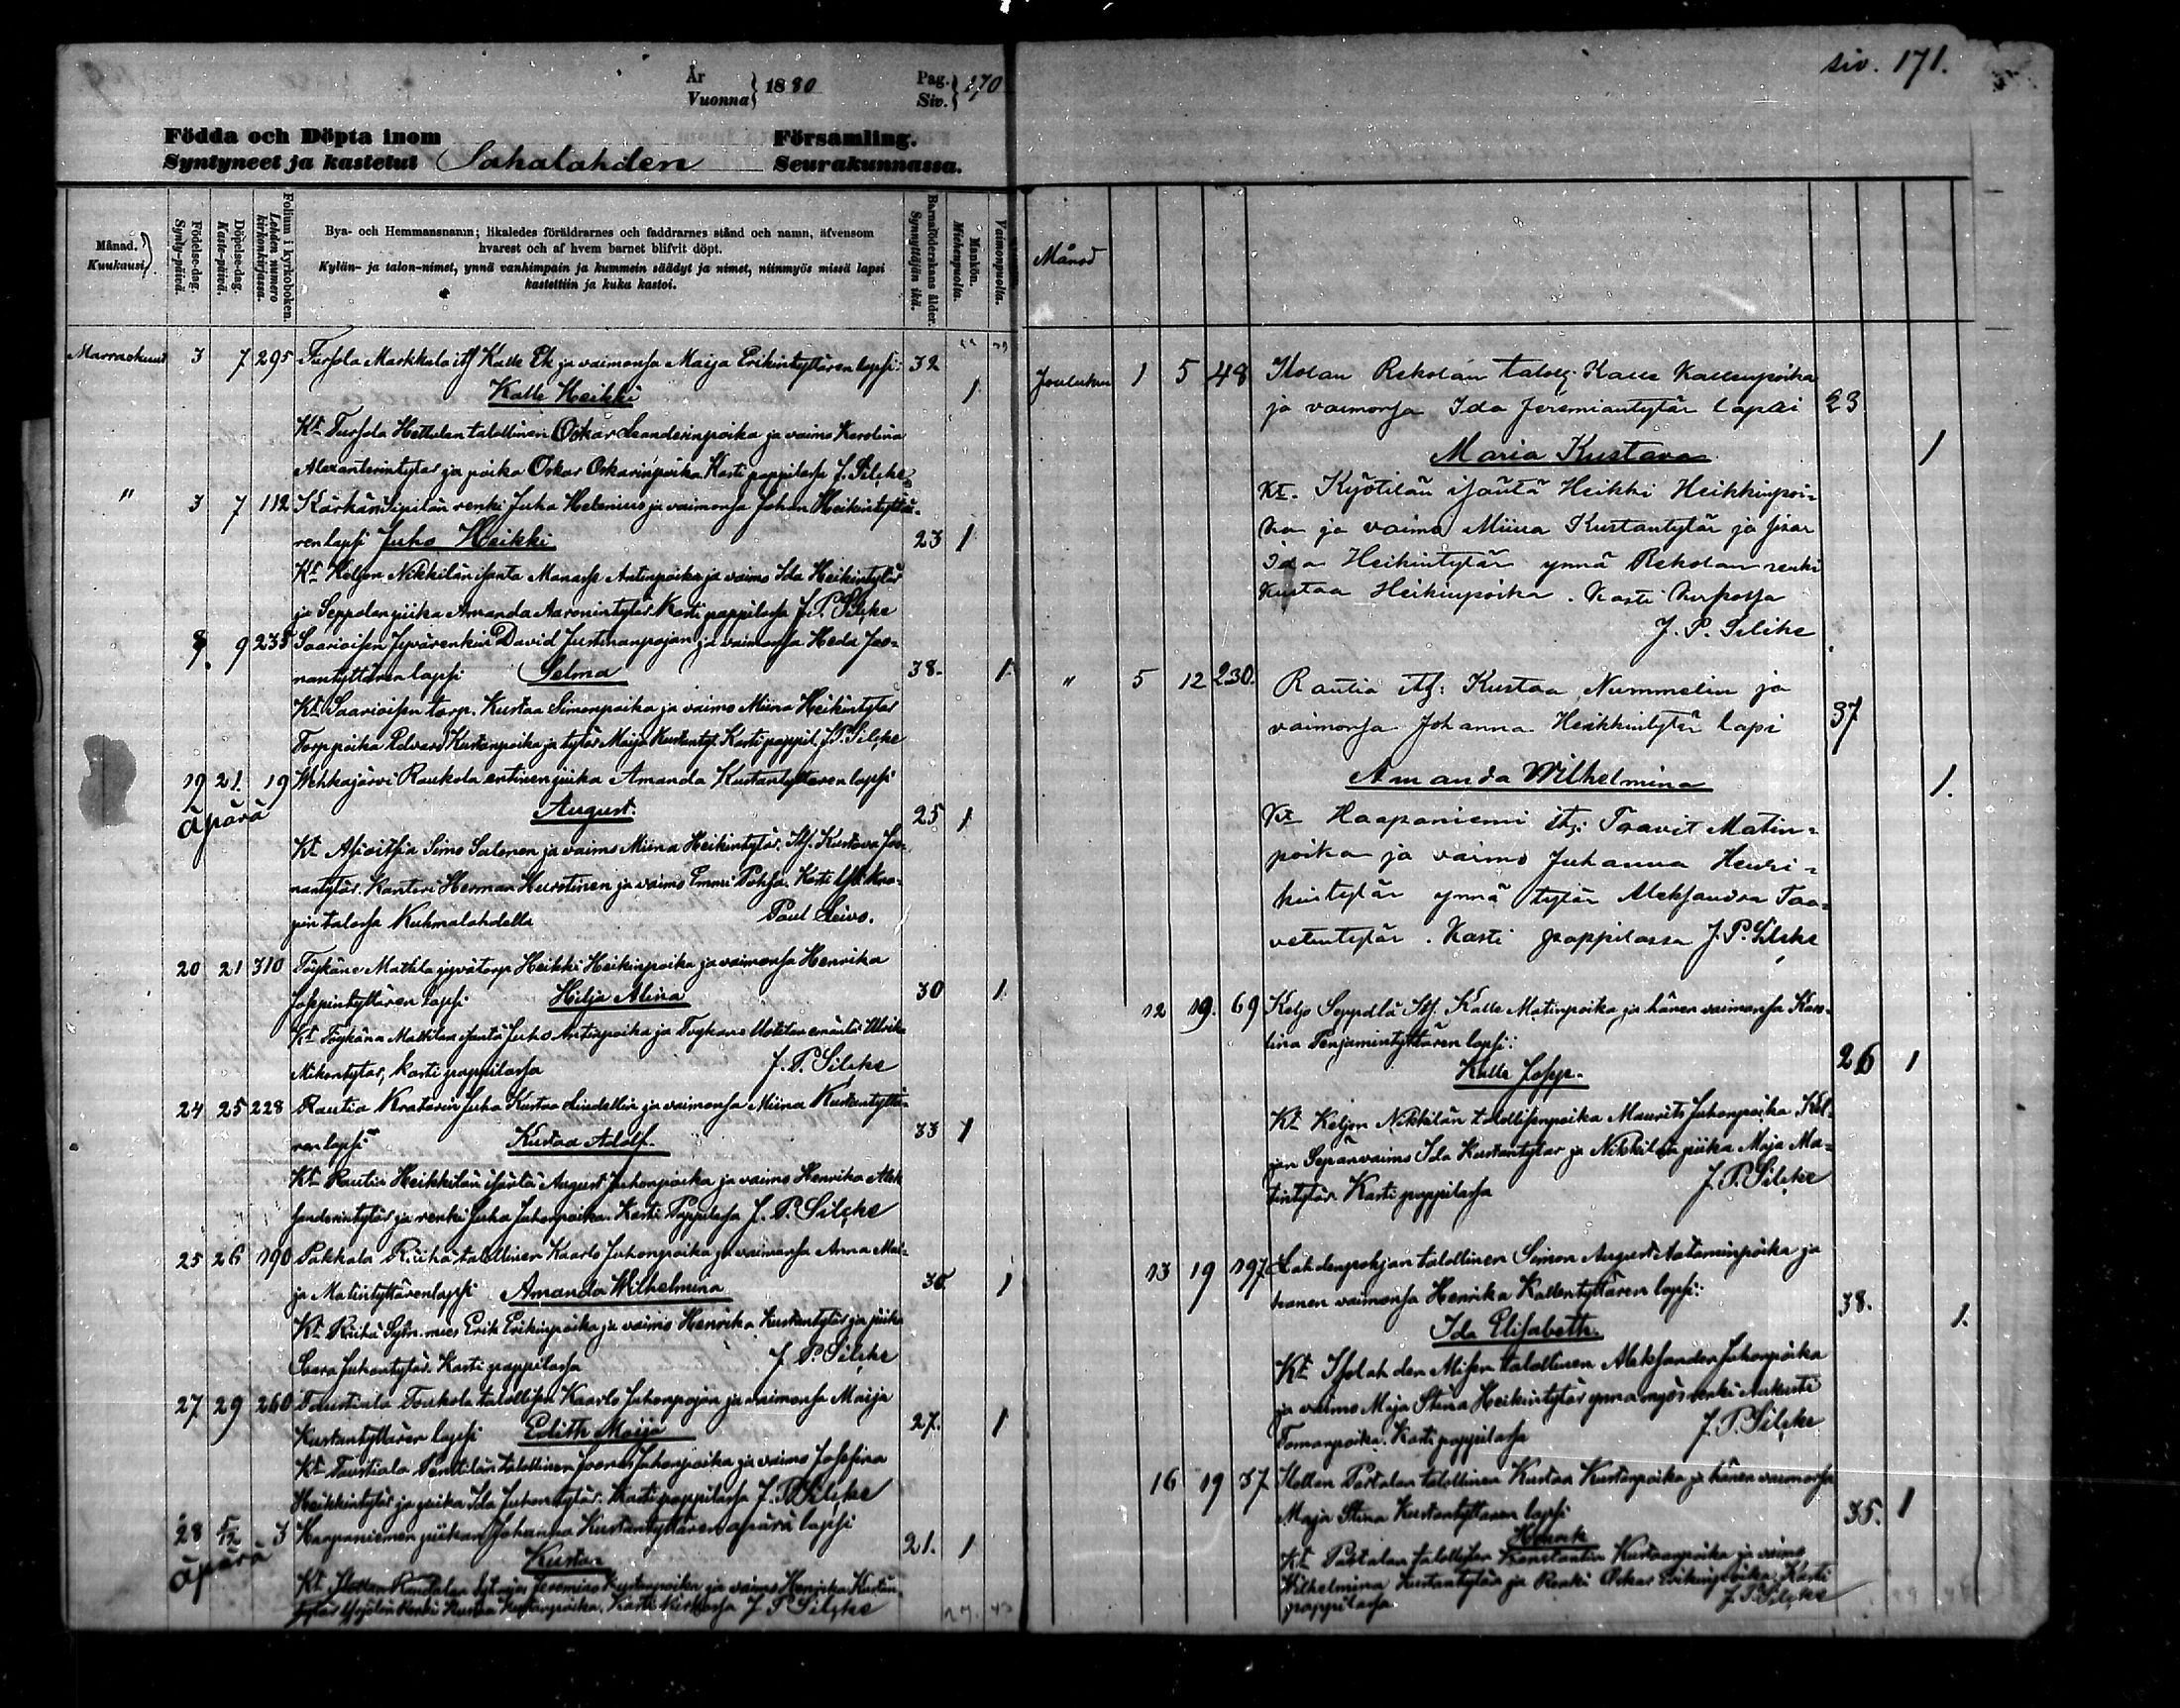 År
Vuonna } 1880
Pag.
Siv. } 170
Födda och Döpta inom Församling.
Syntyneet ja kastetut Sahalahden Seurakunnassa.
Månad.
Kuukausi.
Födelse-dag.
Synty-päivä.
Döpelse-dag.
Kaste-päivä.
Folium i kyrkoboken.
Lehden numero kirkonkirjassa.
Bya- och Hemmansnamn; likaledes föräldrarnes och faddrarnes stånd och namn, äfvensom
hvarest och af hvem barnet blifvit döpt.
Kylän- ja talon-nimet, ynnä vanhimpain ja kummein säädyt ja nimet, niinmyös missä lapsi
kastettiin ja kuka kastoi.
Barnaföderskans ålder.
Synnyttäjän ikä.
Mankön.
Miehenpuolta.
Vaimonpuolta.
Marraskuu 3 7 295 Tursola Markkula itf Kalle Ek ja vaimonsa Maija Erikintyttären lapsi: 32
Kalle Heikki 1
Kt Tursola Hettulan talollinen Oskar Leanderinpoika ja vaimo Karolina
Alexanterintytär ja poika Oskar Oskarinpoika Kasti pappilassa J. Silcke
" 3 7 112 Kärkän Sipilän renki Juha Helenius ja vaimonsa Johan Heikintyttä-
ren lapsi Juho Heikki 23 1
Kt Keljon Nikkilän isäntä Manasse Antinpoika ja vaimo Ida Heikintytär
ja Seppolan piika Amanda Aaronintytär. Kasti pappilassa J. P. Silcke
8. 9 235 Saarioisen Jyvärenkin David Justinanpojan ja vaimonsa Heda Joo-
nantyttären lapsi Selma 38. 1.
Kt Saarioisen torp. Kustaa Simonpoika ja vaimo Miina Heikintytär
Torppoika Edvard Kustanpoika ja tytär Maija Kustantyt. Kasti pappil. J. P. Silcke
19 21. 19 Wehkajärvi Raukola entinen piika Amanda Kustantyttären lapsi
äpärä August. 25 1
Kt Asioitsia Simo Salonen ja vaimo Miina Heikintytär. Itf. Kustava Joo-
nantytär. Kanteri Herman Hurstinen ja vaimo Emmi
pin talossa Kuhmalahdella Paul Leivo.
20 21 310 Töykänä Mattila jyvätorp Heikki Heikinpoika ja vaimonsa Henrika
Josppintyttären lapsi Hilja Alina 30 1
Kt Töykänä Mattilan isäntä Juho Antinpoika ja Töykänä emäntä Ulrika
Mikontytär, Kasti pappilassa J. P. Silcke
24 25 228 Rautia Kratarin Juha Kustaa Lindellin ja vaimonsa Miina Kustantyttä-
ren lapsi Kustaa Adolf. 33 1
Kt Rautia Heikkilän isäntä August Juhonpoika ja vaimo Henrika Alek
sanderintytär ja renki Juha Juhonpoika. Kasti Pappilassa J. P. Silcke
25 26 190 Pakkala Riihä talollinen Kaarlo Juhonpoika ja vaimonsa Anna Mai-
ja Matintyttären lapsi Amanda Wilhelmina 1
Kt Riihä Sytn. mies Erik Erikinpoika ja vaimo Henrika Kustantytär ja piika
Saara Juhontytär. Kasti pappilassa J. P. Silcke
27 29 260 Taustiala Toukola talollisen Kaarlo Juhonpojan ja vaimonsa Maija
Kustantyttären lapsi Edith Maija 27. 1
Kt Taustiala Penttilän talollinen Joonas Juhonpoika ja vaimo Josefina
Heikkintytär ja piika Ida Juhontytär. Kasti pappilassa J. P. Silcke
28 5/12 3 Haapaniemen piikan Johanna Kustantyttären äpärä lapsi 21. 1
äpärä Kustaa
Kt Ilolan Jeremias Kustanpoika ja vaimo Henrika Kustan-
tytär Yrjölän Renki Kustaa Kustanpoika. Kasti Kirkossa J P Silcke
siv. 171.
Månad
Joulukuu 1 5 48 Ilolan Rekolan talolg. Kalle Kallenpoika
ja vaimonsa Ida Jeremiantytär lapsi 23
Maria Kustava 1
Kt. Kyötilän isäntä Heikki Heikkinpoi-
ka ja vaimo Miina Kustantytär ja sisar
Ida Heikintytär ynnä Rekolan renki
Kustaa Heikinpoika. Kasti kirkossa
J. P. Silcke
" 5 12 230. Rautia itf: Kustaa Nummelin ja
vaimonsa Johanna Heikkintytär lapsi 37
Amanda Wilhelmina 1.
Kt Haapaniemi itf: Taavit Matin-
poika ja vaimo Juhanna Henri-
kintytär ynnä tytär Aleksandra Taa-
vetintytär. Kasti pappilassa J. P. Silcke
12 19. 69 Keljo Seppälä Itf. Kalle Matinpoika ja hänen vaimonsa Karo-
lina Penjamintyttären lapsi: 26 1
Kalle Josep.
Kt Keljon Nikkilän talollisenpoika Maurits Juhonpoika. Kel-
jon Sepänvaimo Ida Kustantytär ja Nikkilän piika Maja Ma-
tintytär Kasti pappilassa J. P. Silcke
13 19 197 Lahdenpohjan talollinen Simon August Aataminpoika ja
hänen vaimonsa Henrika Kallentyttären lapsi: 38. 1.
Ida Elisabeth.
Kt Isolahden talollinen Aleksander Juhonpoika
ja vaimo Maja Stina Heikintytär ynnä myös renki Aukusti
Tomanpoika. Kasti pappilassa J. P. Silcke
16 19 37 Ilollan Partalan talollinen Kustaa Kustanpoika ja hänen vaimonsa
Maja Stina Kustantyttären lapsi 35. 1
Henrik
Kt Partalan talollisen Konstantin Kustaanpoika ja vaimo
Wilhelmina Kustantytär ja Renki Oskar Erikinpoika. Kasti
pappilassa J. P. Silcke